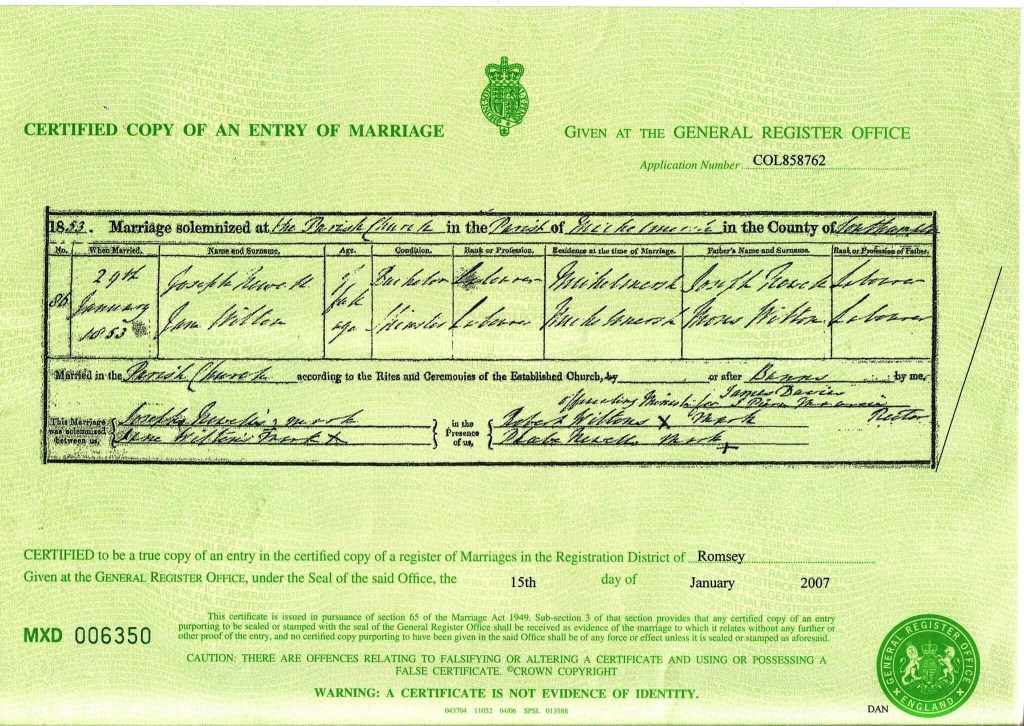 CERTIFIED COPY OF AN ENTRY OF MARRIAGE
GIVEN AT THE GENERAL REGISTER OFFICE
Application Number COL858762
1853. Marriage solemnized at the Parish Church in the Parish of in the County of Southampton
No. When Married. Name and Surname. Age. Condition. Rank or Profession. Residence at the time of Marriage. Father's Name and Surname. Rank or Profession of Father.
86 29th January 1853 Joseph Newell of full age Bachelor Labourer Michelmersh Joseph Labourer
Jane Wilton Spinster Labourer Michelmersh Moses Wilton Labourer
Married in the Parish Church according to the Rites and Ceremonies of the Established Church, by or after Banns by me,
James Davies
officiating Minister for Rector
This Marriage was solemnized between us, Joseph Newell's mark in the Presence of us, Robert Wiltons X mark
Jane Wilton's mark + Phoebe Newell mark +
CERTIFIED to be a true copy of an entry in the certified copy of a register of Marriages in the Registration District of Romsey
Given at the GENERAL REGISTER OFFICE, under the Seal of the said Office, the 15th day of January 2007
This certificate is issued in pursuance of section 65 of the Marriage Act 1949. Sub-section 3 of that section provides that any certified copy of an entry
purporting to be sealed or stamped with the seal of the General Register Office shall be received as evidence of the marriage to which it relates without any further or
other proof of the entry, and no certified copy purporting to have been given in the said Office shall be of any force or effect unless it is sealed or stamped as aforesaid.
MXD 006350
CAUTION: THERE ARE OFFENCES RELATING TO FALSIFYING OR ALTERING A CERTIFICATE AND USING OR POSSESSING A
FALSE CERTIFICATE. ©CROWN COPYRIGHT
WARNING: A CERTIFICATE IS NOT EVIDENCE OF IDENTITY.
043704 11052 04/06 SPSL 013588
GENERAL REGISTER OFFICE
ENGLAND
DAN